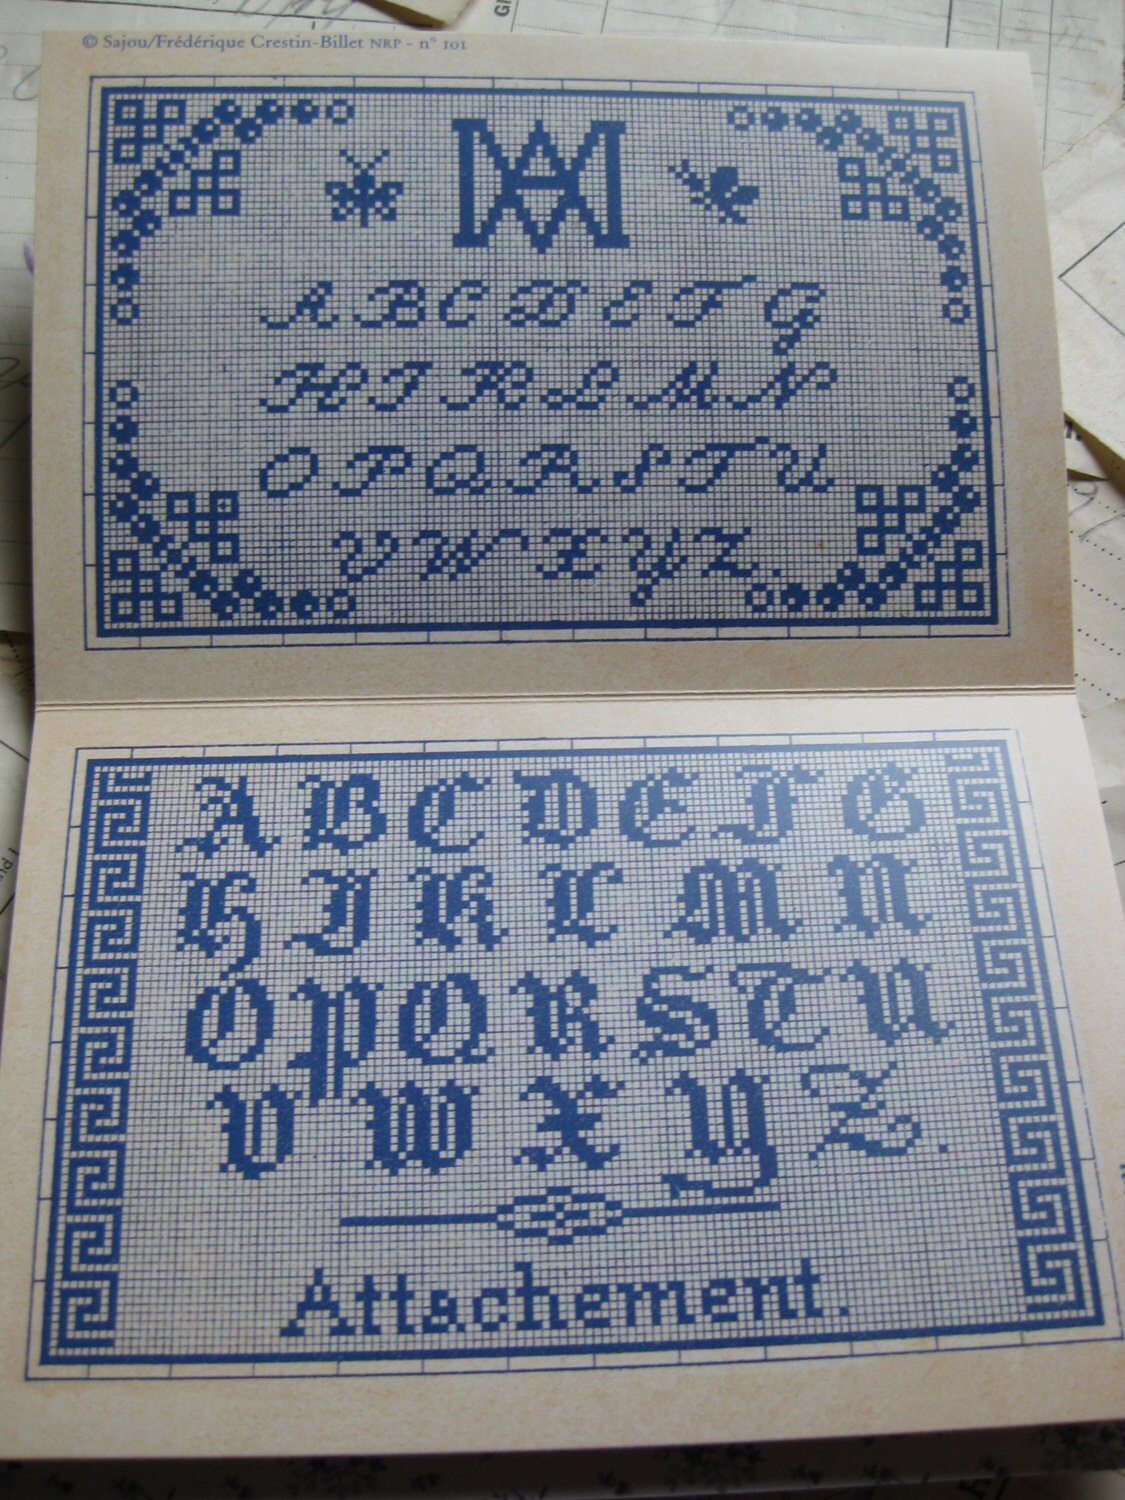 © Sajou/Frédérique Crestin-Billet NRP - n° 101
A B C D E F G
H I K L M N
O P Q R S T U
V W X Y Z.
A B C D E F G
H I K L M N
O P Q R S T U
V W X Y Z.
Attachement.